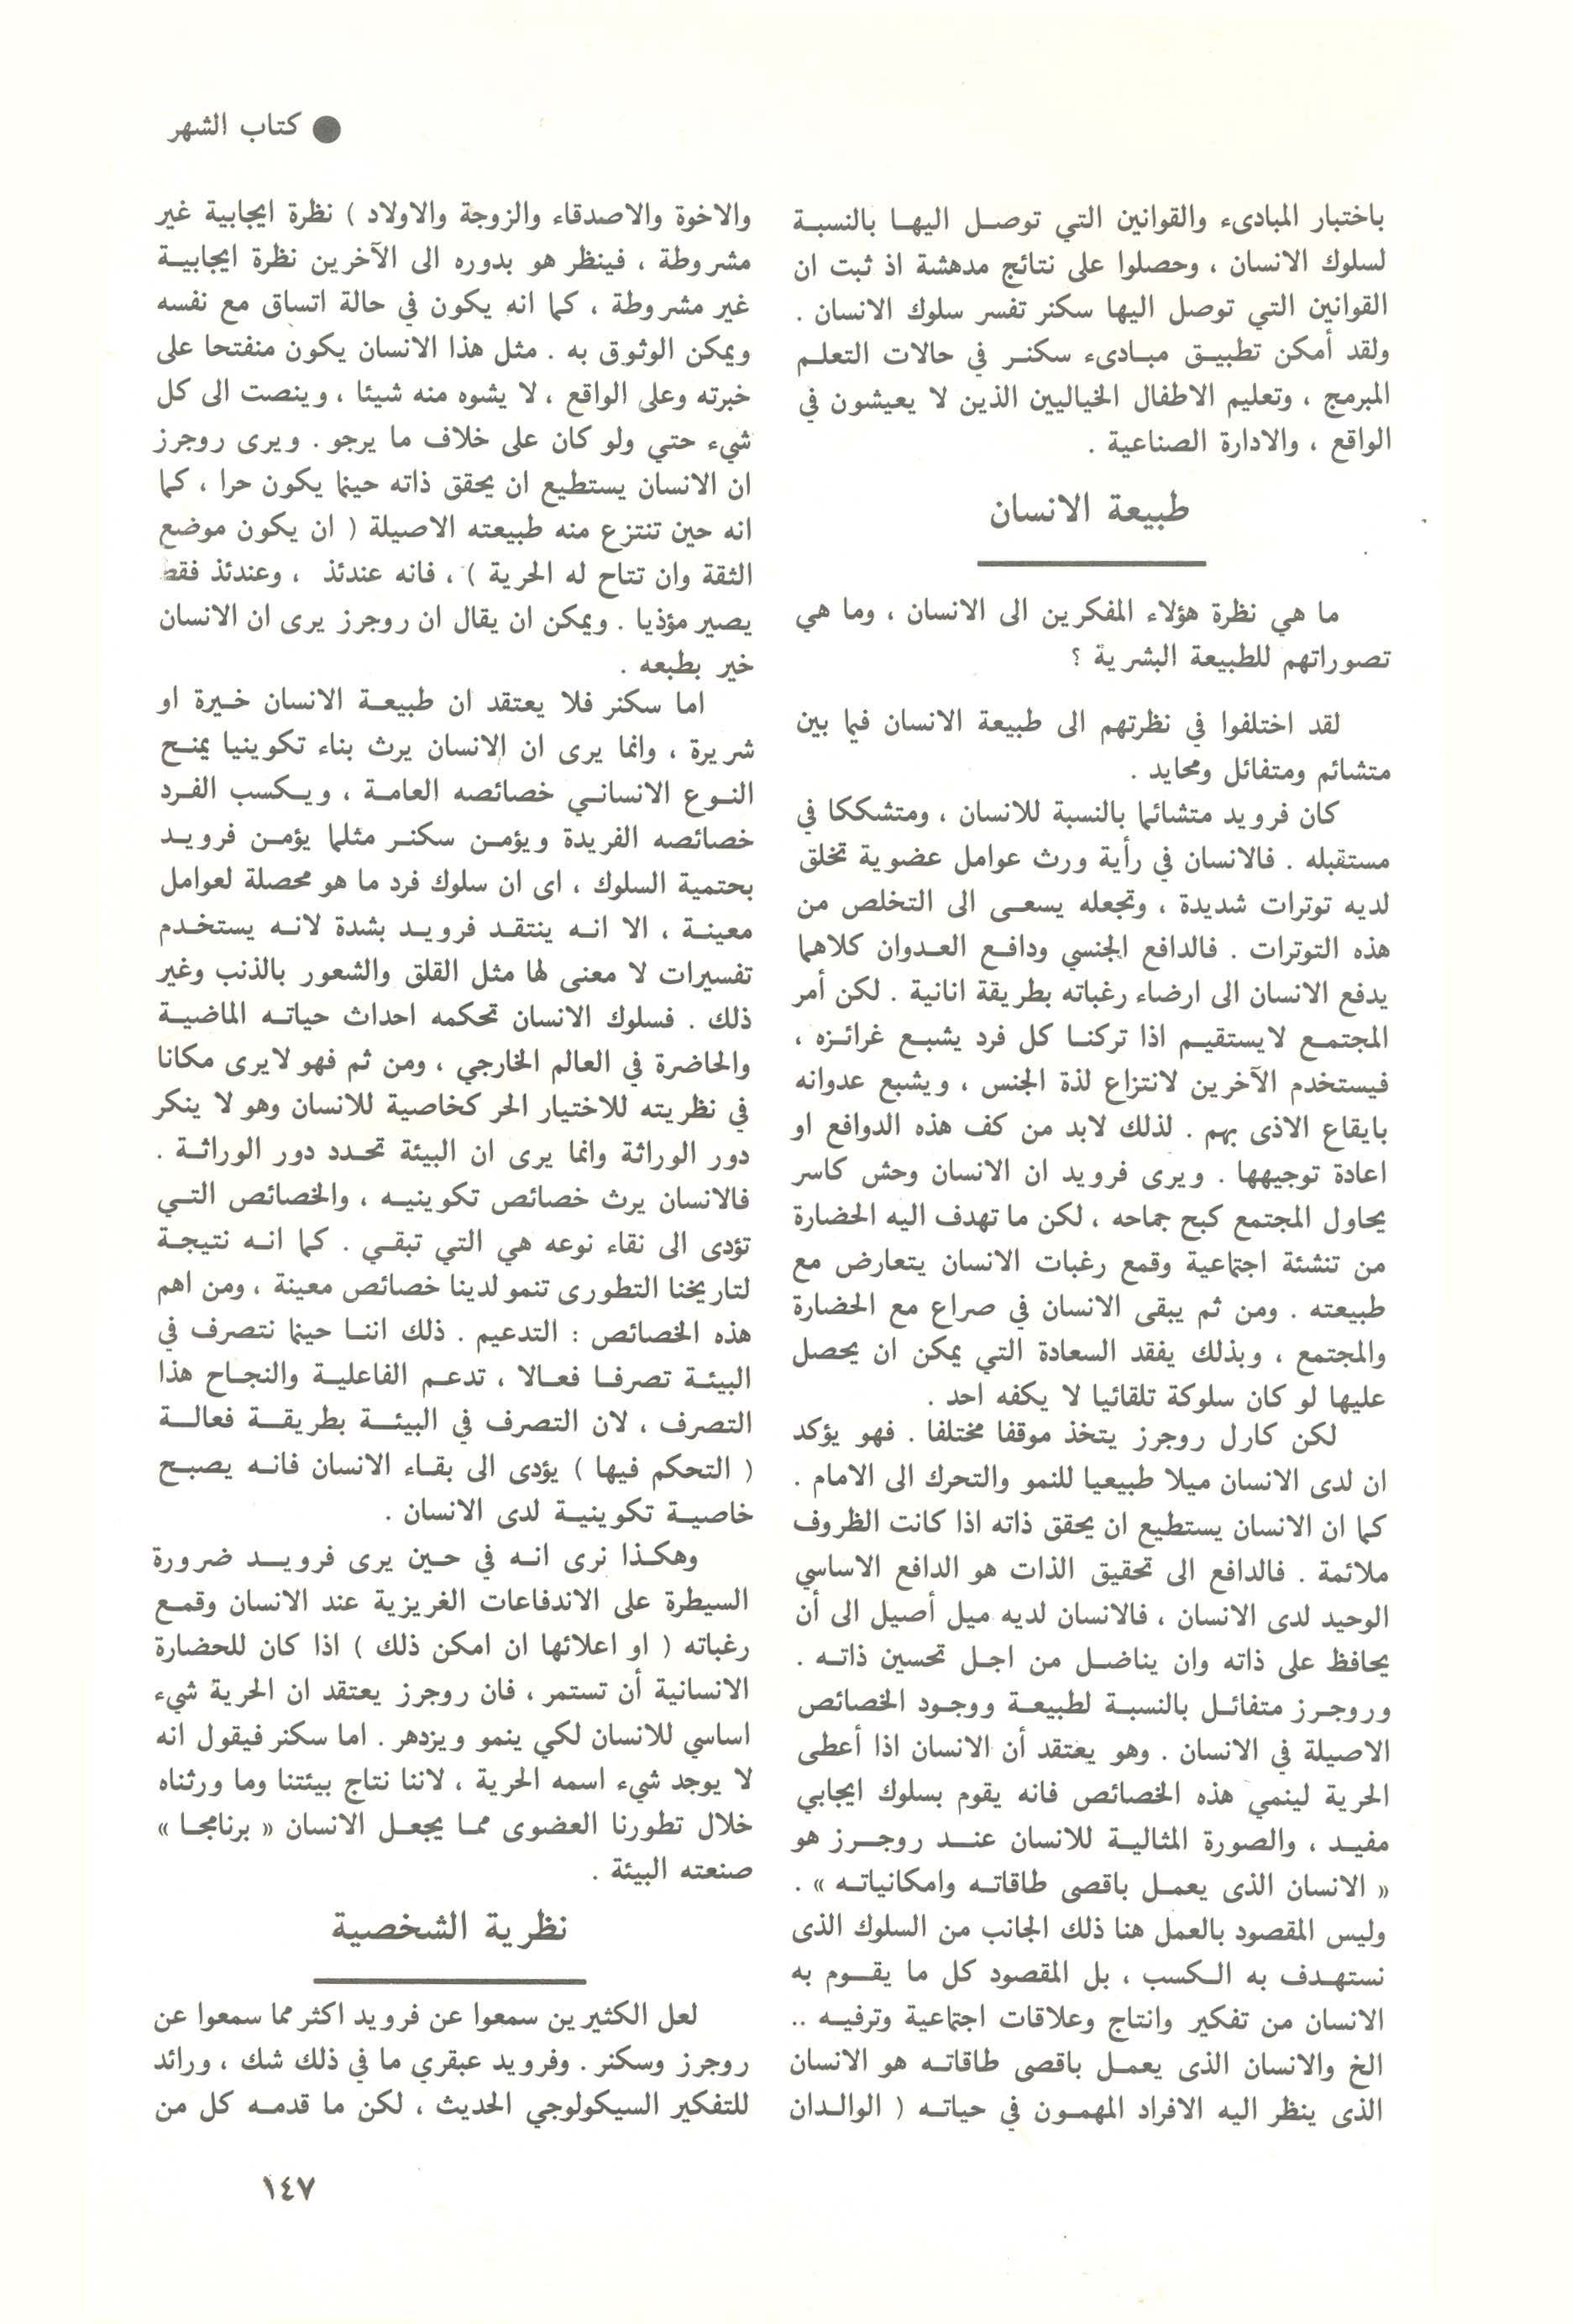 ● كتاب الشهر
باختبار المبادىء والقوانين التي توصل اليها بالنسبة
لسلوك الانسان ، وحصلوا على نتائج مدهشة اذ ثبت ان
القوانين التي توصل اليها سكنر تفسر سلوك الانسان .
ولقد أمكن تطبيق مبادىء سكنر في حالات التعلم
المبرمج ، وتعليم الاطفال الخياليين الذين لا يعيشون في
الواقع ، والادارة الصناعية .
طبيعة الانسان
ما هي نظرة هؤلاء المفكرين الى الانسان ، وما هي
تصوراتهم للطبيعة البشرية ؟
لقد اختلفوا في نظرتهم الى طبيعة الانسان فيما بين
متشائم ومتفائل ومحايد .
كان فرويد متشائما بالنسبة للانسان ، ومتشككا في
مستقبله . فالانسان في رأية ورث عوامل عضوية تخلق
لديه توترات شديدة ، وتجعله يسعى الى التخلص من
هذه التوترات . فالدافع الجنسي ودافع العدوان كلاهما
يدفع الانسان الى ارضاء رغباته بطريقة انانية . لكن أمر
المجتمع لايستقيم اذا تركنا كل فرد يشبع غرائزه ،
فيستخدم الآخرين لانتزاع لذة الجنس ، ويشبع عدوانه
بايقاع الاذى بهم . لذلك لابد من كف هذه الدوافع او
اعادة توجيهها . ويرى فرويد ان الانسان وحش كاسر
يحاول المجتمع كبح جماحه ، لكن ما تهدف اليه الحضارة
من تنشئة اجتماعية وقمع رغبات الانسان يتعارض مع
طبيعته . ومن ثم يبقى الانسان في صراع مع الحضارة
والمجتمع ، وبذلك يفقد السعادة التي يمكن ان يحصل
عليها لو كان سلوكة تلقائيا لا يكفه احد .
لكن كارل روجرز يتخذ موقفا مختلفا . فهو يؤكد
ان لدى الانسان ميلا طبيعيا للنمو والتحرك الى الامام .
كما ان الانسان يستطيع ان يحقق ذاته اذا كانت الظروف
ملائمة . فالدافع الى تحقيق الذات هو الدافع الاساسي
الوحيد لدى الانسان ، فالانسان لديه ميل أصيل الى أن
يحافظ على ذاته وان يناضل من اجل تحسين ذاته .
وروجرز متفائل بالنسبة لطبيعة ووجود الخصائص
الاصيلة في الانسان . وهو يعتقد أن الانسان اذا أعطى
الحرية لينمي هذه الخصائص فانه يقوم بسلوك ايجابي
مفيد ، والصورة المثالية للانسان عند روجرز هو
« الانسان الذى يعمل باقصى طاقاته وامكانياته » .
وليس المقصود بالعمل هنا ذلك الجانب من السلوك الذى
نستهدف به الكسب ، بل المقصود كل ما يقوم به
الانسان من تفكير وانتاج وعلاقات اجتماعية وترفيه ..
الخ والانسان الذى يعمل باقصى طاقاته هو الانسان
الذى ينظر اليه الافراد المهمون في حياته ( الوالدان
والاخوة والاصدقاء والزوجة والاولاد ) نظرة ايجابية غير
مشروطة ، فينظر هو بدوره الى الآخرين نظرة ايجابية
غير مشروطة ، كما انه يكون في حالة اتساق مع نفسه
ويمكن الوثوق به . مثل هذا الانسان يكون منفتحا على
خبرته وعلى الواقع ، لا يشوه منه شيئا ، وينصت الى كل
شيء حتي ولو كان على خلاف ما يرجو . ويرى روجرز
ان الانسان يستطيع ان يحقق ذاته حينما يكون حرا ، كما
انه حين تنتزع منه طبيعته الاصيلة ( ان يكون موضع
الثقة وان تتاح له الحرية ) ، فانه عندئذ ، وعندئذ فقط
يصير مؤذيا . ويمكن ان يقال ان روجرز يرى ان الانسان
خير بطبعه .
اما سكنر فلا يعتقد ان طبيعة الانسان خيرة او
شريرة ، وانما يرى ان الانسان يرث بناء تكوينيا يمنح
النوع الانساني خصائصه العامة ، ويكسب الفرد
خصائصه الفريدة ويؤمن سكنر مثلما يؤمن فرويد
بحتمية السلوك ، اى ان سلوك فرد ما هو محصلة لعوامل
معينة ، الا انه ينتقد فرويد بشدة لانه يستخدم
تفسيرات لا معنى لها مثل القلق والشعور بالذنب وغير
ذلك . فسلوك الانسان تحكمه احداث حياته الماضية
والحاضرة في العالم الخارجي ، ومن ثم فهو لايرى مكانا
في نظريته للاختيار الحر كخاصية للانسان وهو لا ينكر
دور الوراثة وانما يرى ان البيئة تحدد دور الوراثة .
فالانسان يرث خصائص تكوينيه ، والخصائص التي
تؤدى الى نقاء نوعه هي التي تبقي . كما انه نتيجة
لتاريخنا التطورى تنمو لدينا خصائص معينة ، ومن اهم
هذه الخصائص : التدعيم . ذلك اننا حينما نتصرف في
البيئة تصرفا فعالا ، تدعم الفاعلية والنجاح هذا
التصرف ، لان التصرف في البيئة بطريقة فعالة
( التحكم فيها ) يؤدى الى بقاء الانسان فانه يصبح
خاصية تكوينية لدى الانسان .
وهكذا نرى انه في حين يرى فرويد ضرورة
السيطرة على الاندفاعات الغريزية عند الانسان وقمع
رغباته ( او اعلائها ان امكن ذلك ) اذا كان للحضارة
الانسانية أن تستمر ، فان روجرز يعتقد ان الحرية شيء
اساسي للانسان لكي ينمو ويزدهر . اما سكنر فيقول انه
لا يوجد شيء اسمه الحرية ، لاننا نتاج بيئتنا وما ورثناه
خلال تطورنا العضوى مما يجعل الانسان « برنامجا »
صنعته البيئة .
نظرية الشخصية
لعل الكثيرين سمعوا عن فرويد اكثر مما سمعوا عن
روجرز وسكنر . وفرويد عبقري ما في ذلك شك ، ورائد
للتفكير السيكولوجي الحديث ، لكن ما قدمه كل من
١٤٧